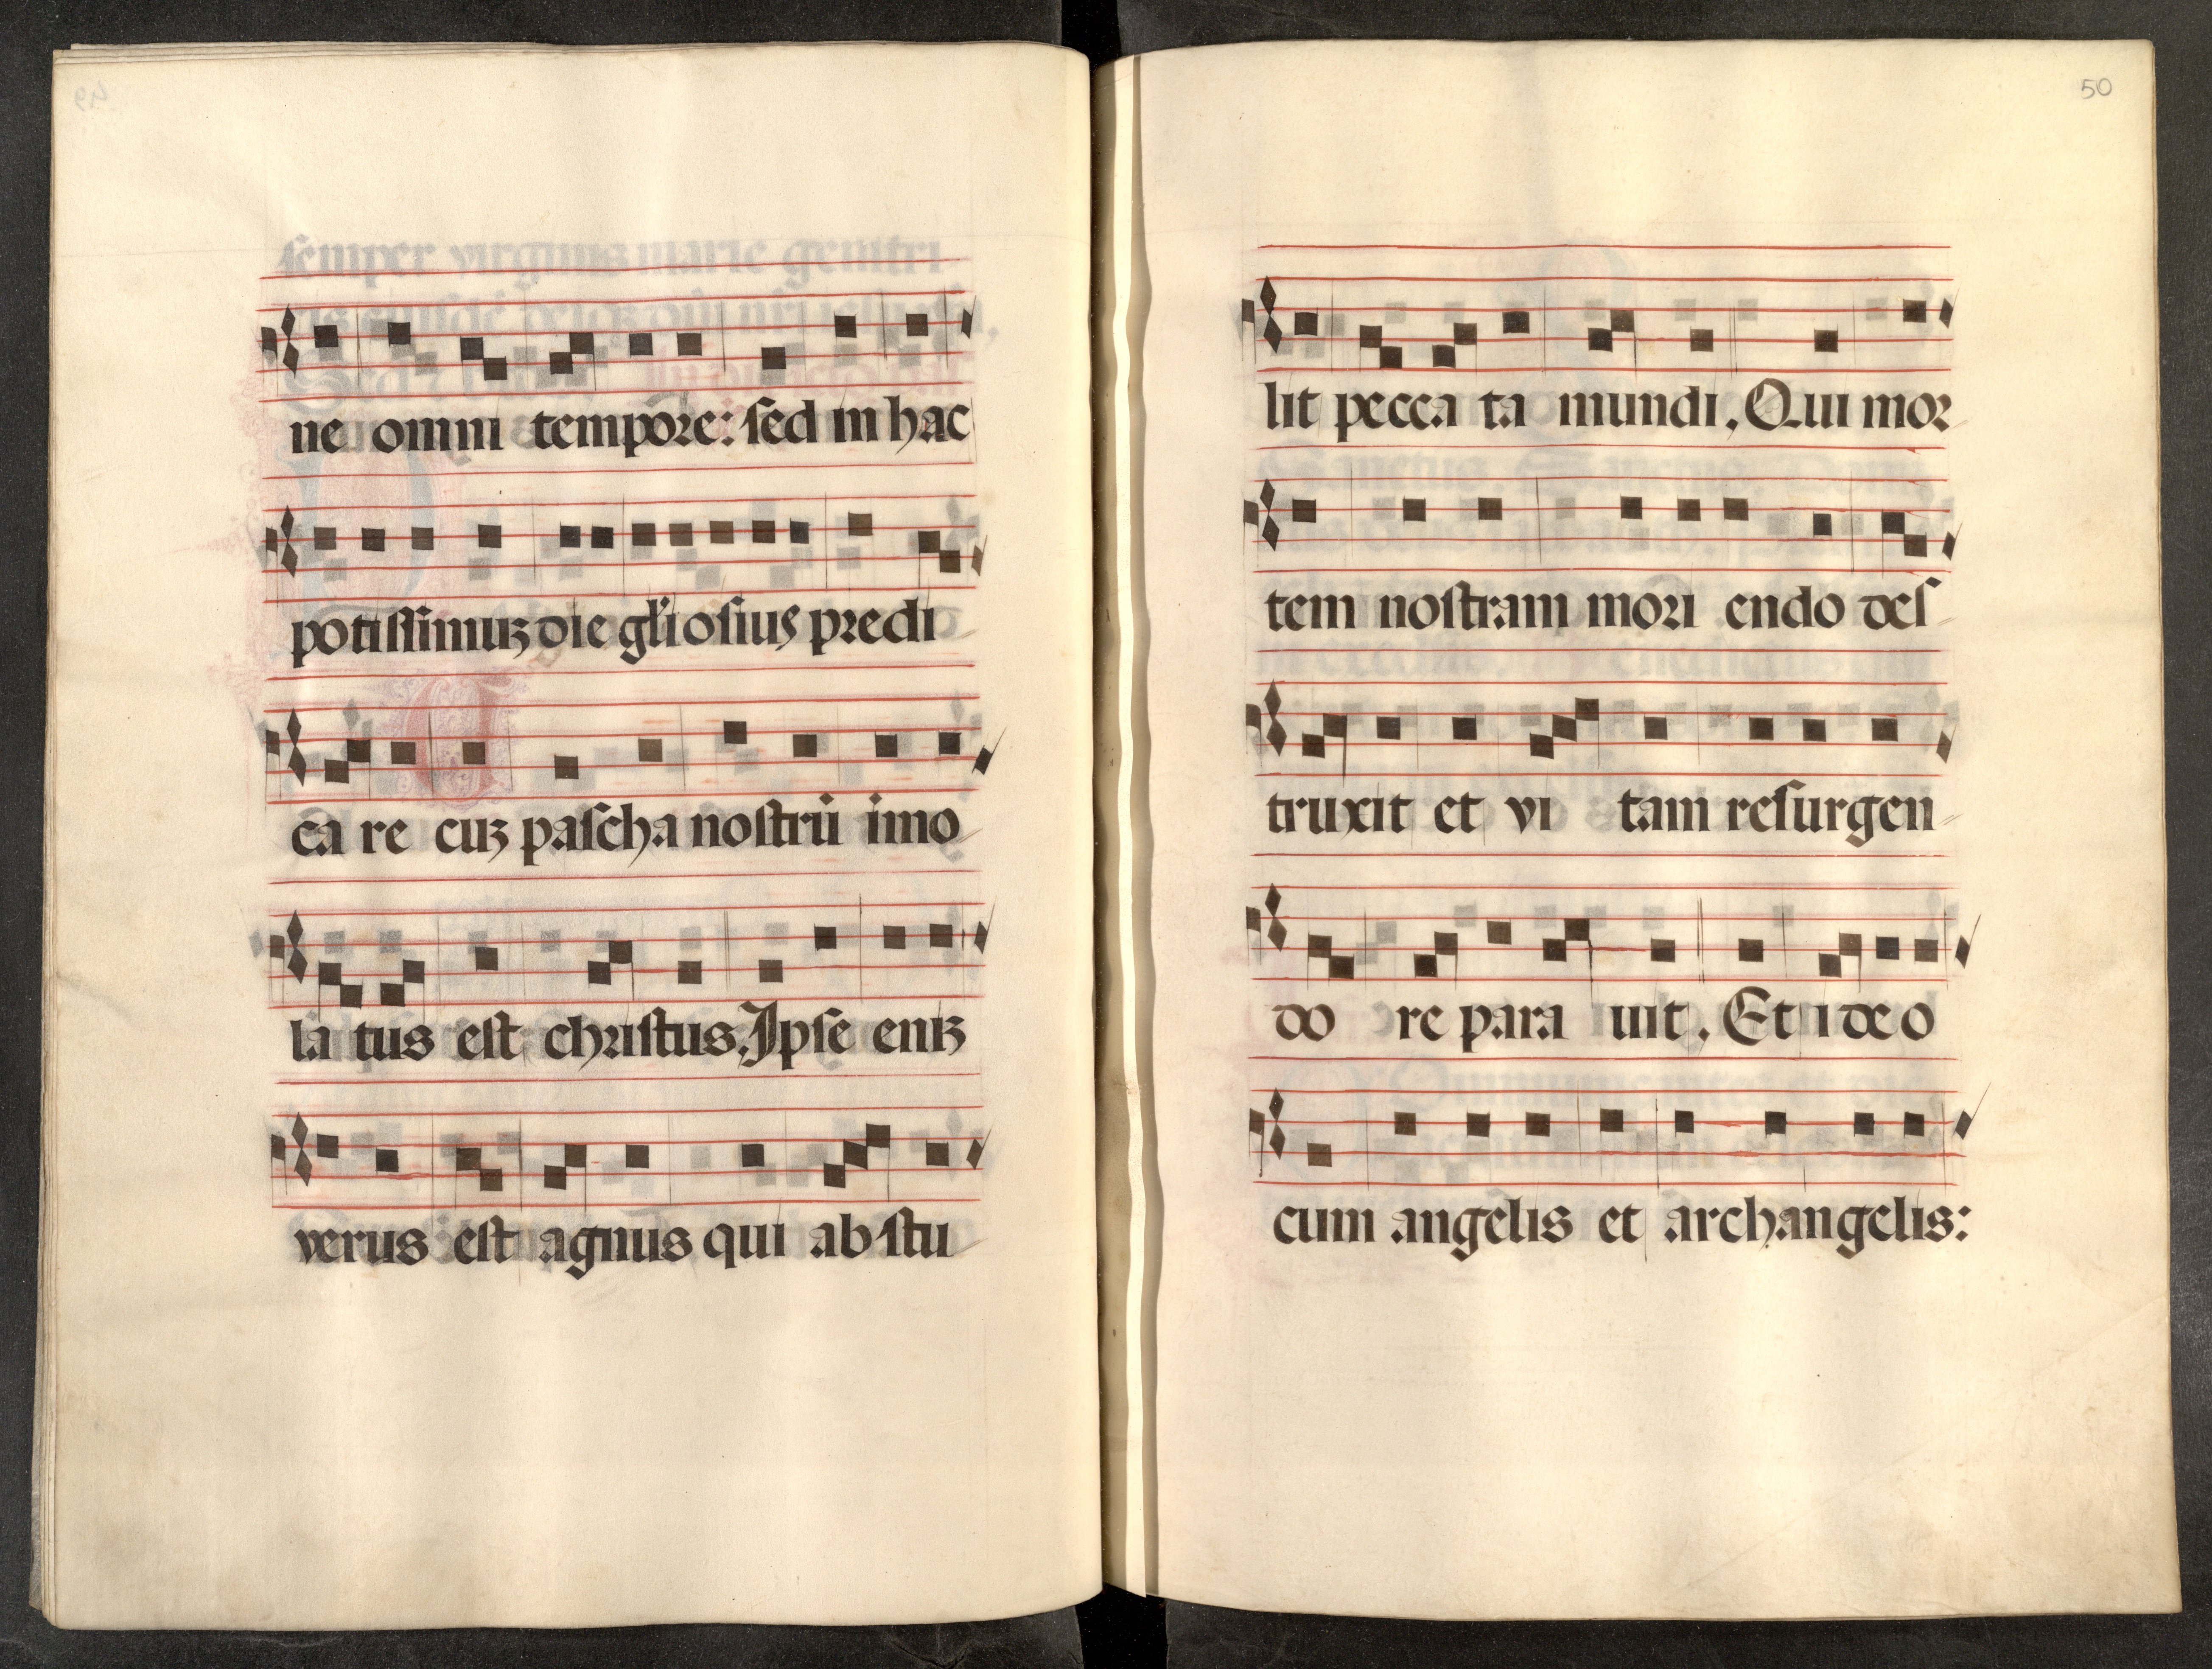 ne omni tempore: sed in hac
potissimuz die gl'iosius predi
ca re cuz pascha nostrū imo
la tus est christus. Ipse eniz
verus est agnus qui abstu
50
lit pecca ta mundi. Qui mor
tem nostram mori endo des
truxit et vi tam resurgen
do re para uit. Et ideo
cum angelis et archangelis: